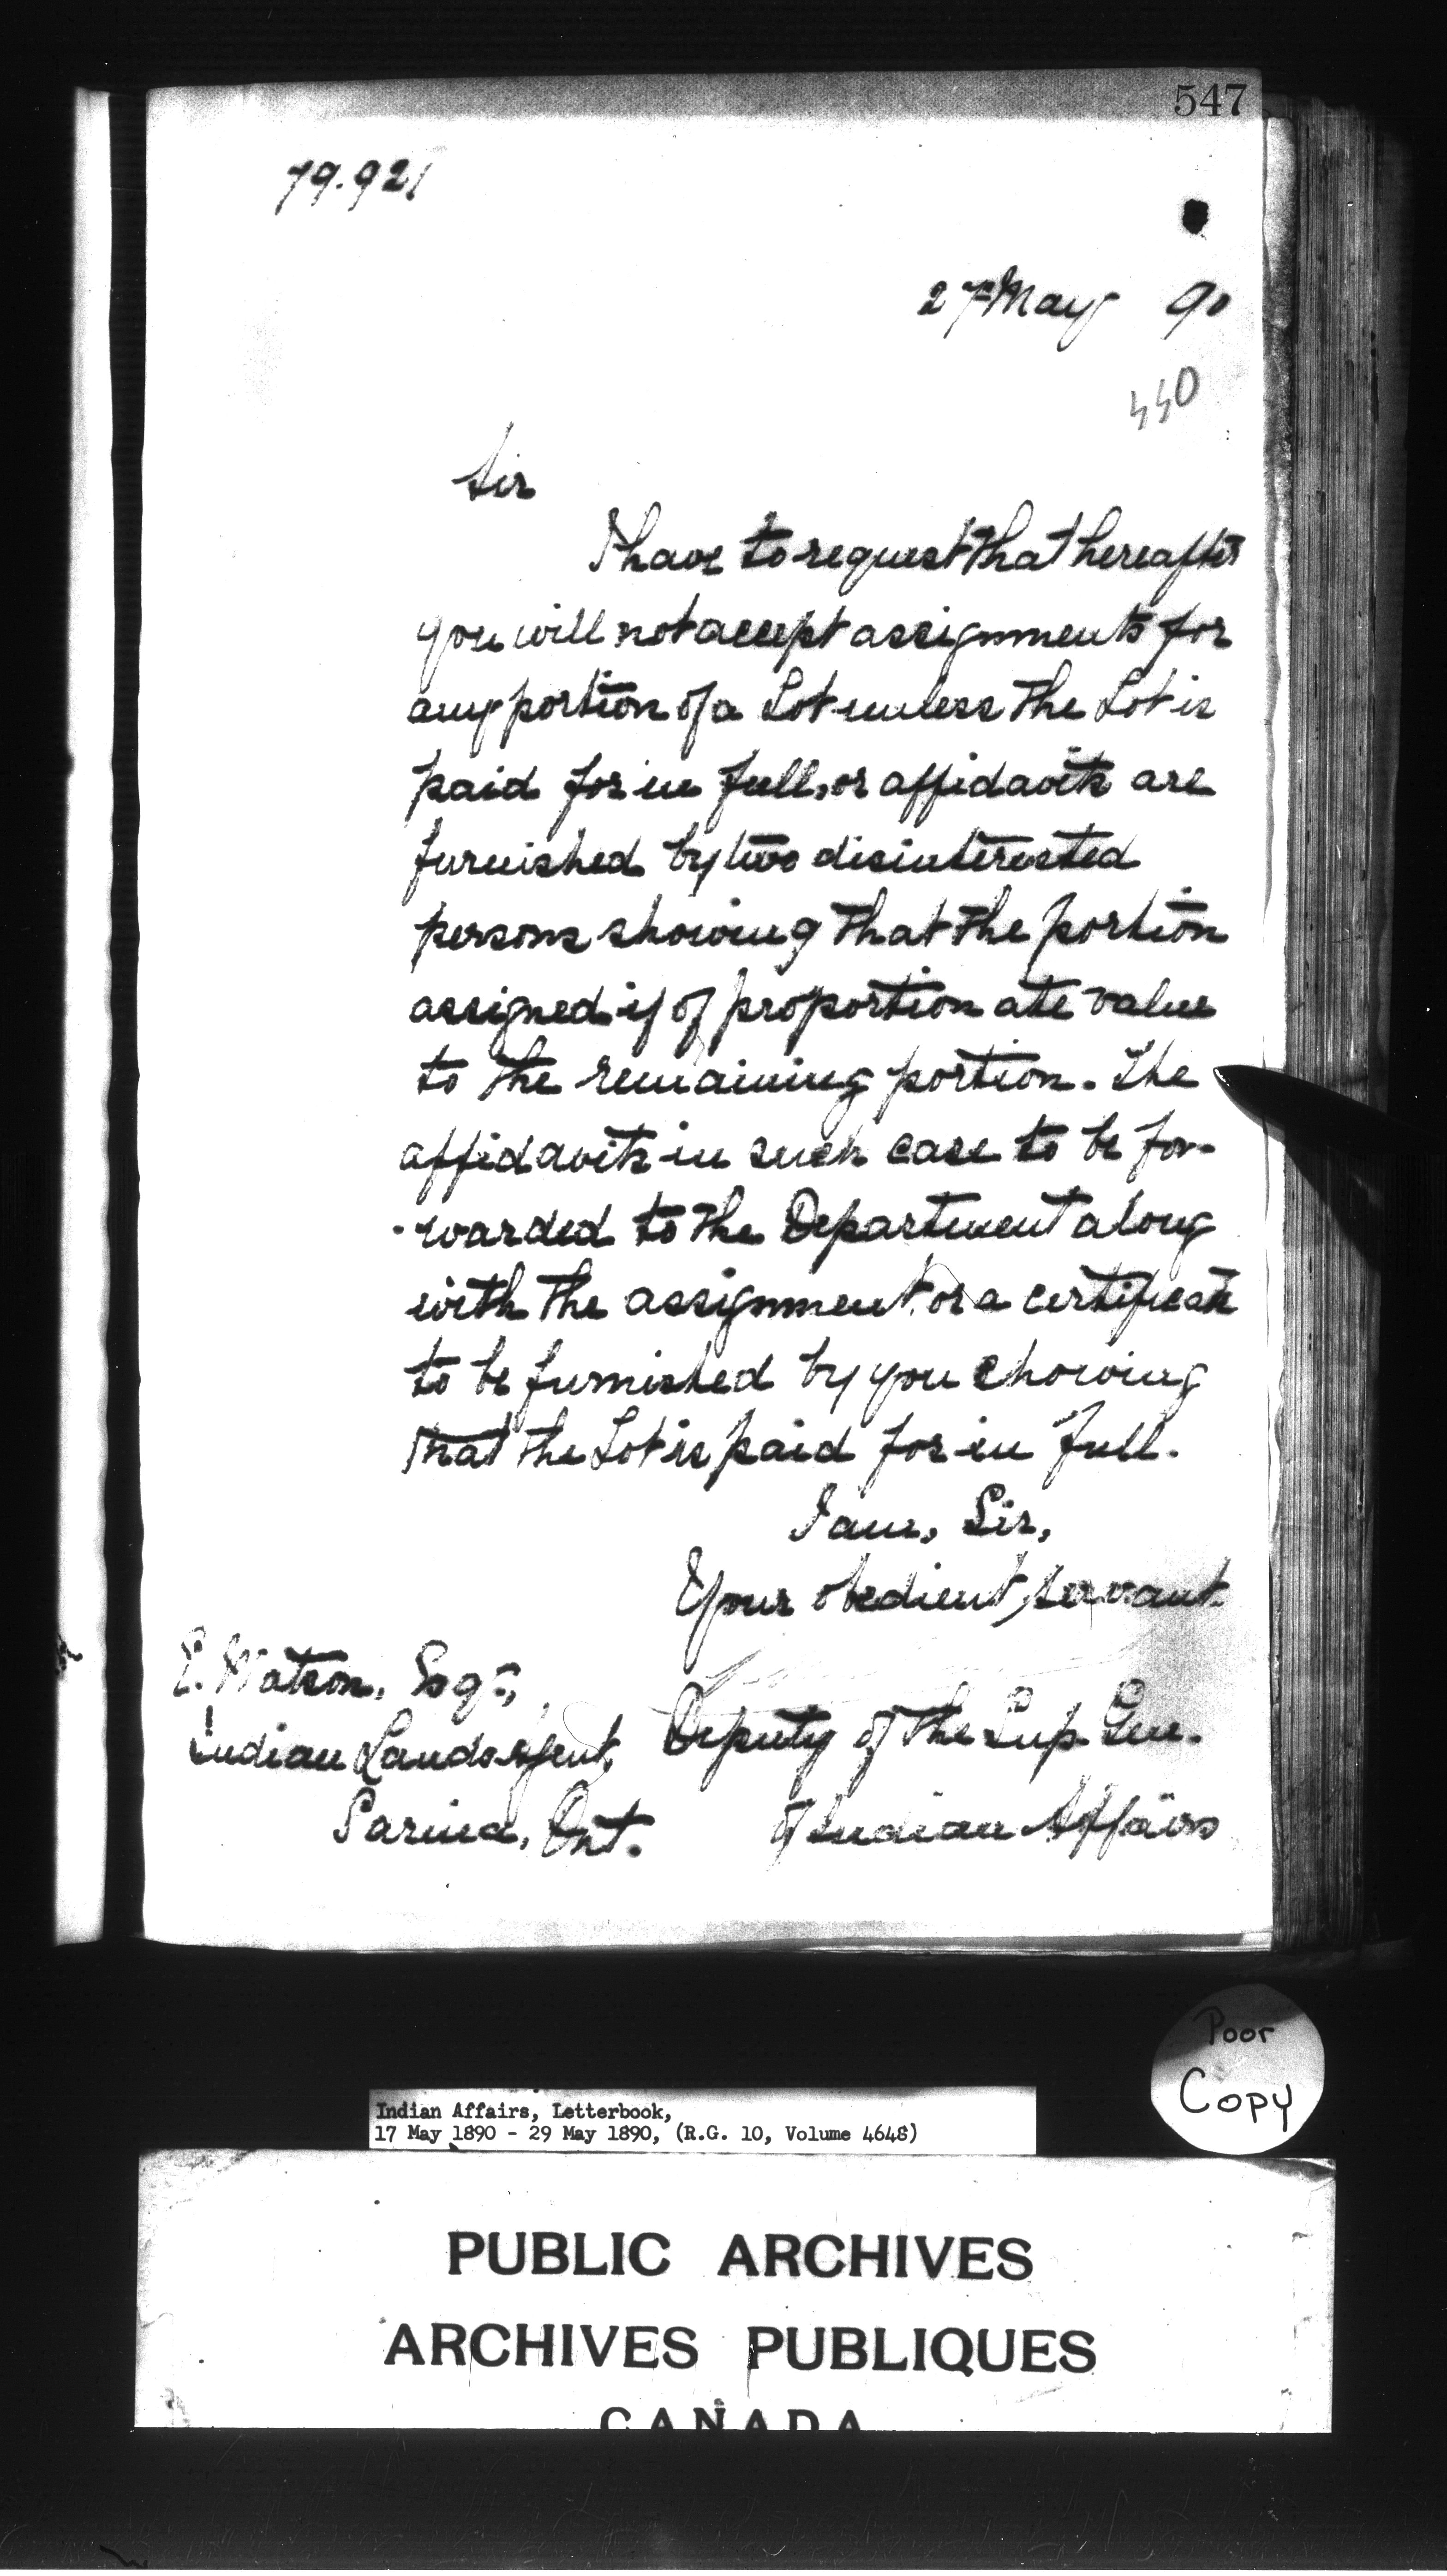 547
79.921
27 May 90
440
Sir
I have to request that hereafter
you will not accept assignments for
any portion of a Lot unless the Lot is
paid for in full, or affidavits are
furnished by two disinterested
persons showing that the portion
assigned if of proportionate value
to the remaining portion. The
affidavits in such case to be for-
-warded to the Department along
with the assignment or a certificate
to be furnished by you showing
that the Lot is paid for in full.
I am, Sir,
Your obedient, servant.
E. Watson, Esqr,
Deputy of the Sup. Gen.
Indian Lands Agent,
of Indian Affairs
Sarnia, Ont.
Poor
Copy
Indian Affairs, Letterbook,
17 May 1890 - 29 May 1890, (R.G. 10, Volume 4648)
PUBLIC ARCHIVES
ARCHIVES PUBLIQUES
CANADA